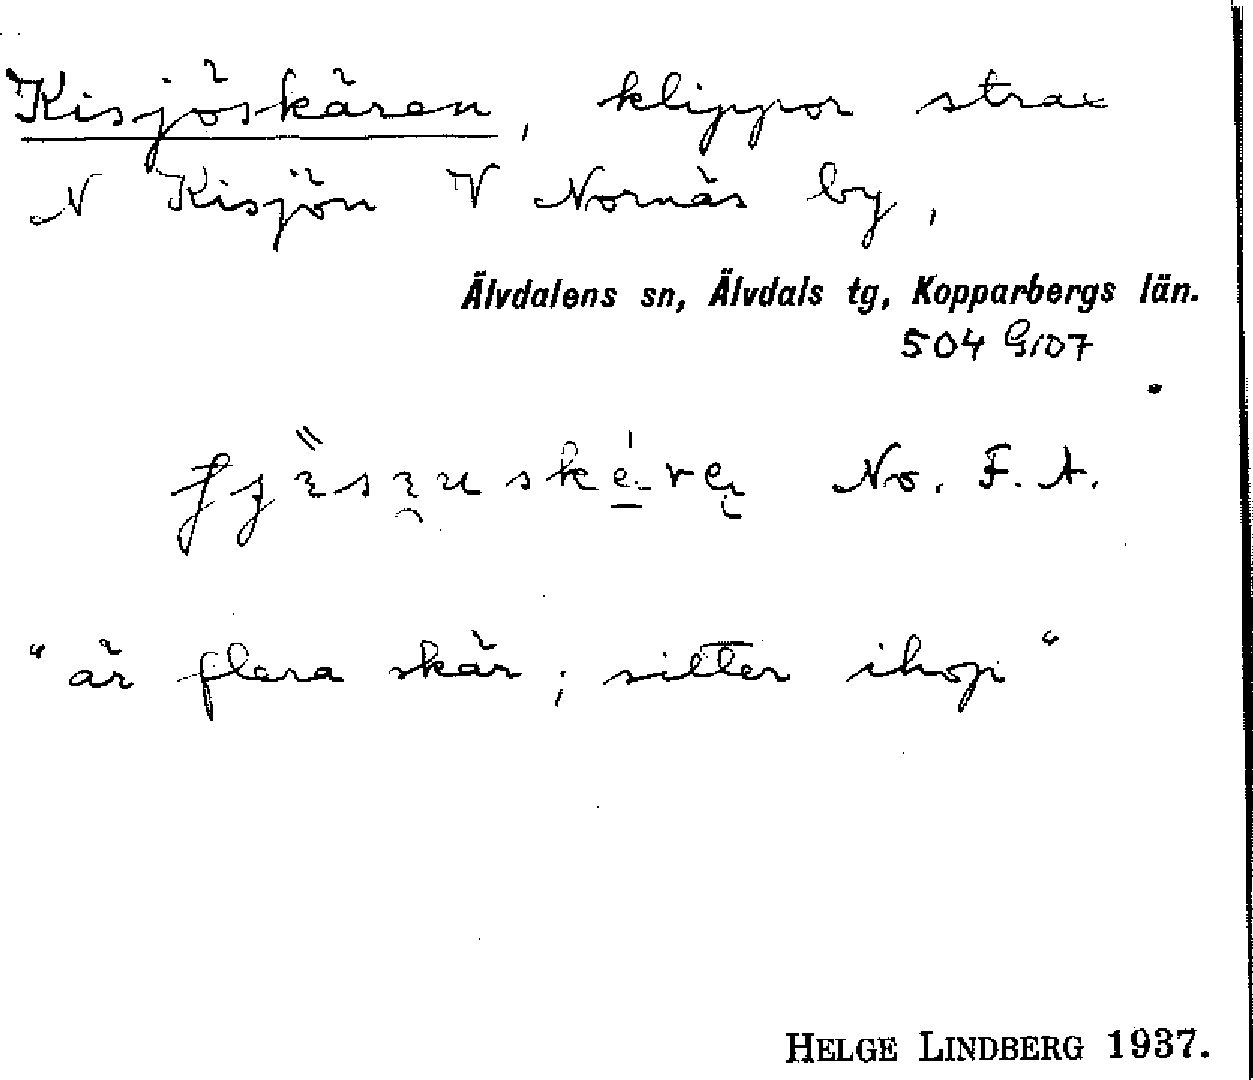 Kisjöskären, klippor strax
N Kisjön V Nornäs by,
Älvdalens sn, Älvdals tg, Kopparbergs län.
504 G107
No. F. A.
"är flera skär; sitter ihop"
HELGE LINDBERG 1937.